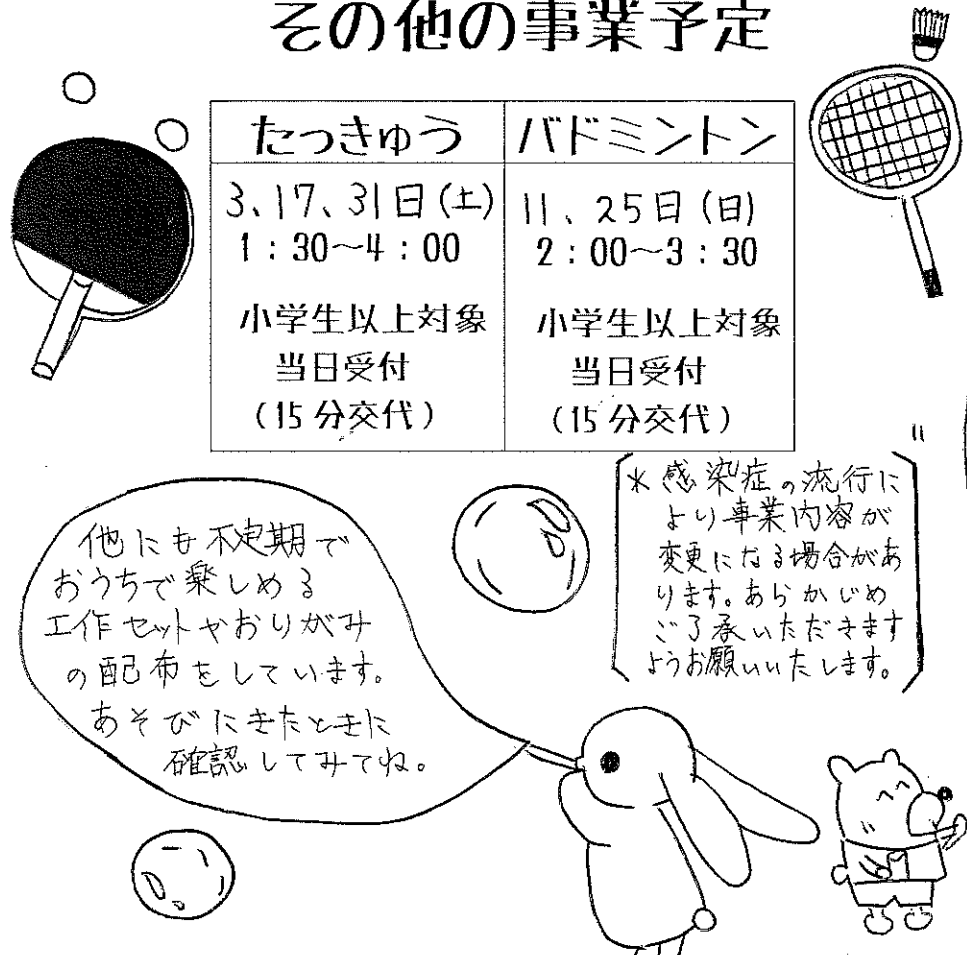 その他の事業予定
たっきゅう
3、17、31日(土)
1:30~4:00
小学生以上対象
当日受付
(15分交代)
バドミントン
11、25日(日)
2:00~3:30
小学生以上対象
当日受付
(15分交代)
*感染症の流行に
より事業内容が
変更になる場合があ
ります。あらかじめ
ご了承いただきます
ようお願いいたします。
他にも不定期で
おうちで楽しめる
工作セットやおりがみ
の配布をしています。
あそびにきたときに
確認してみてね。